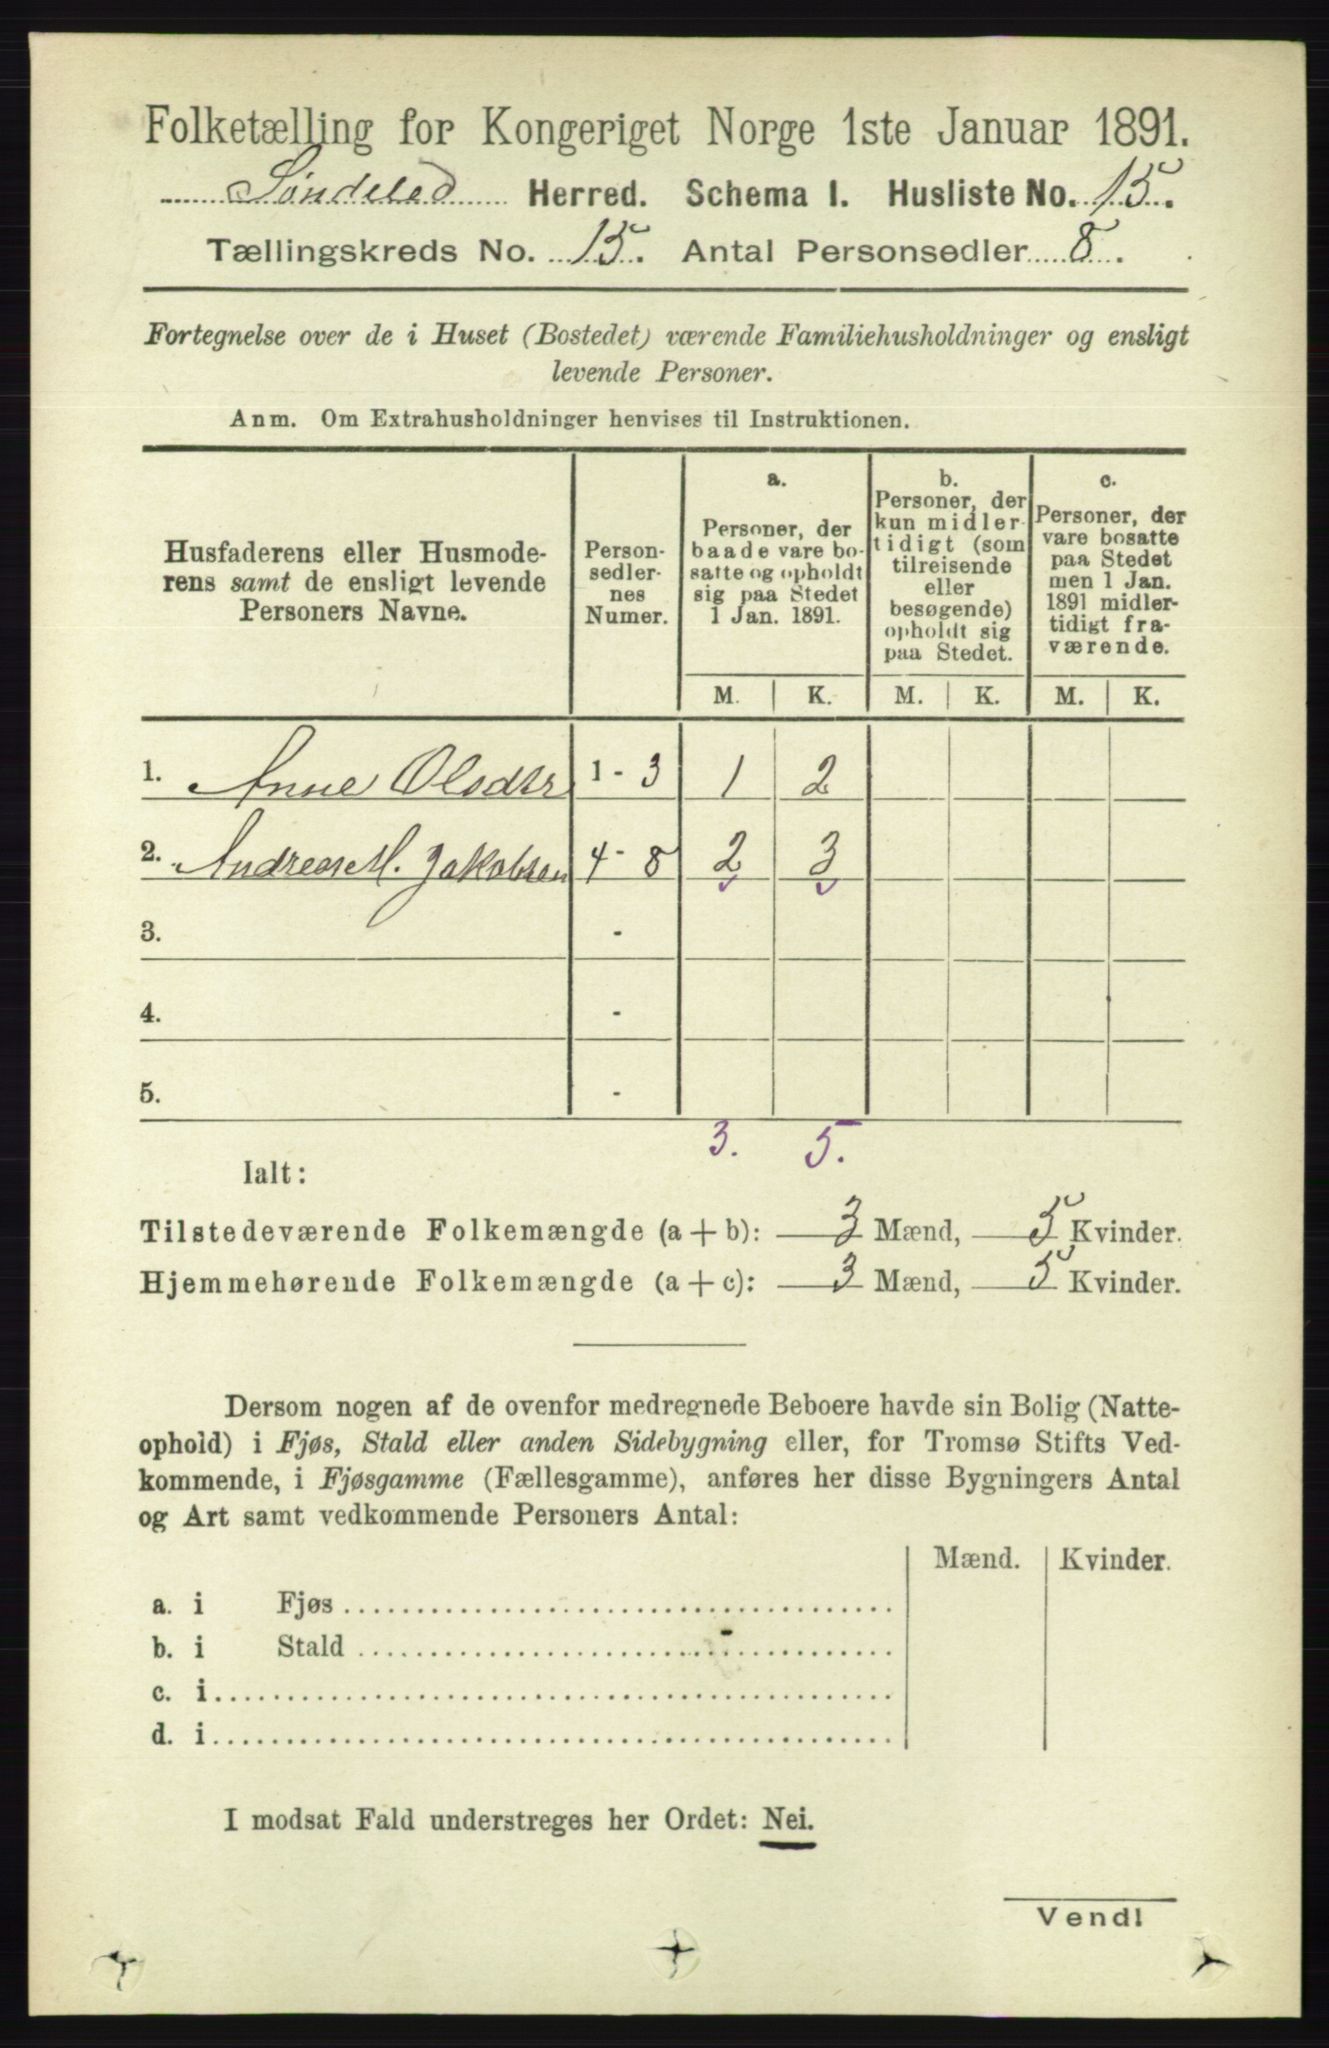 Folketælling for Kongeriget Norge 1ste Januar 1891.
Søndeled Herred. Schema I. Husliste No. 15.
Tællingskreds No. 15. Antal Personsedler 8.
Fortegnelse over de i Huset (Bostedet) værende Familiehusholdninger og ensligt
levende Personer.
Anm. Om Extrahusholdninger henvises til Instruktionen.
Husfaderens eller Husmode-
rens samt de ensligt levende
Personers Navne.
Person-
sedler-
nes
Numer.
a.
Personer, der
baade vare bo-
satte og opholdt
sig paa Stedet
1 Jan. 1891.
b.
Personer, der
kun midler-
tidigt (som
tilreisende
eller
besøgende)
opholdt sig
paa Stedet.
c.
Personer, der
vare bosatte
paa Stedet
men 1 Jan.
1891 midler-
tidigt fra-
værende.
M. K. M. K. M. K.
1. Anne Olsdtr 1 - 3 1 2
2. Andreas M. Jakobsen 4 - 8 2 3
3. -
4. -
5. -
3. 5.
Ialt:
Tilstedeværende Folkemængde (a + b): 3 Mænd, 5 Kvinder.
Hjemmehørende Folkemængde (a + c): 3 Mænd, 5 Kvinder.
Dersom nogen af de ovenfor medregnede Beboere havde sin Bolig (Natte-
ophold) i Fjøs, Stald eller anden Sidebygning eller, for Tromsø Stifts Ved-
kommende, i Fjøsgamme (Fællesgamme), anføres her disse Bygningers Antal
og Art samt vedkommende Personers Antal:
Mænd. Kvinder.
a. i Fjøs
b. i Stald
c. i
d. i
I modsat Fald understreges her Ordet: Nei.
Vend!